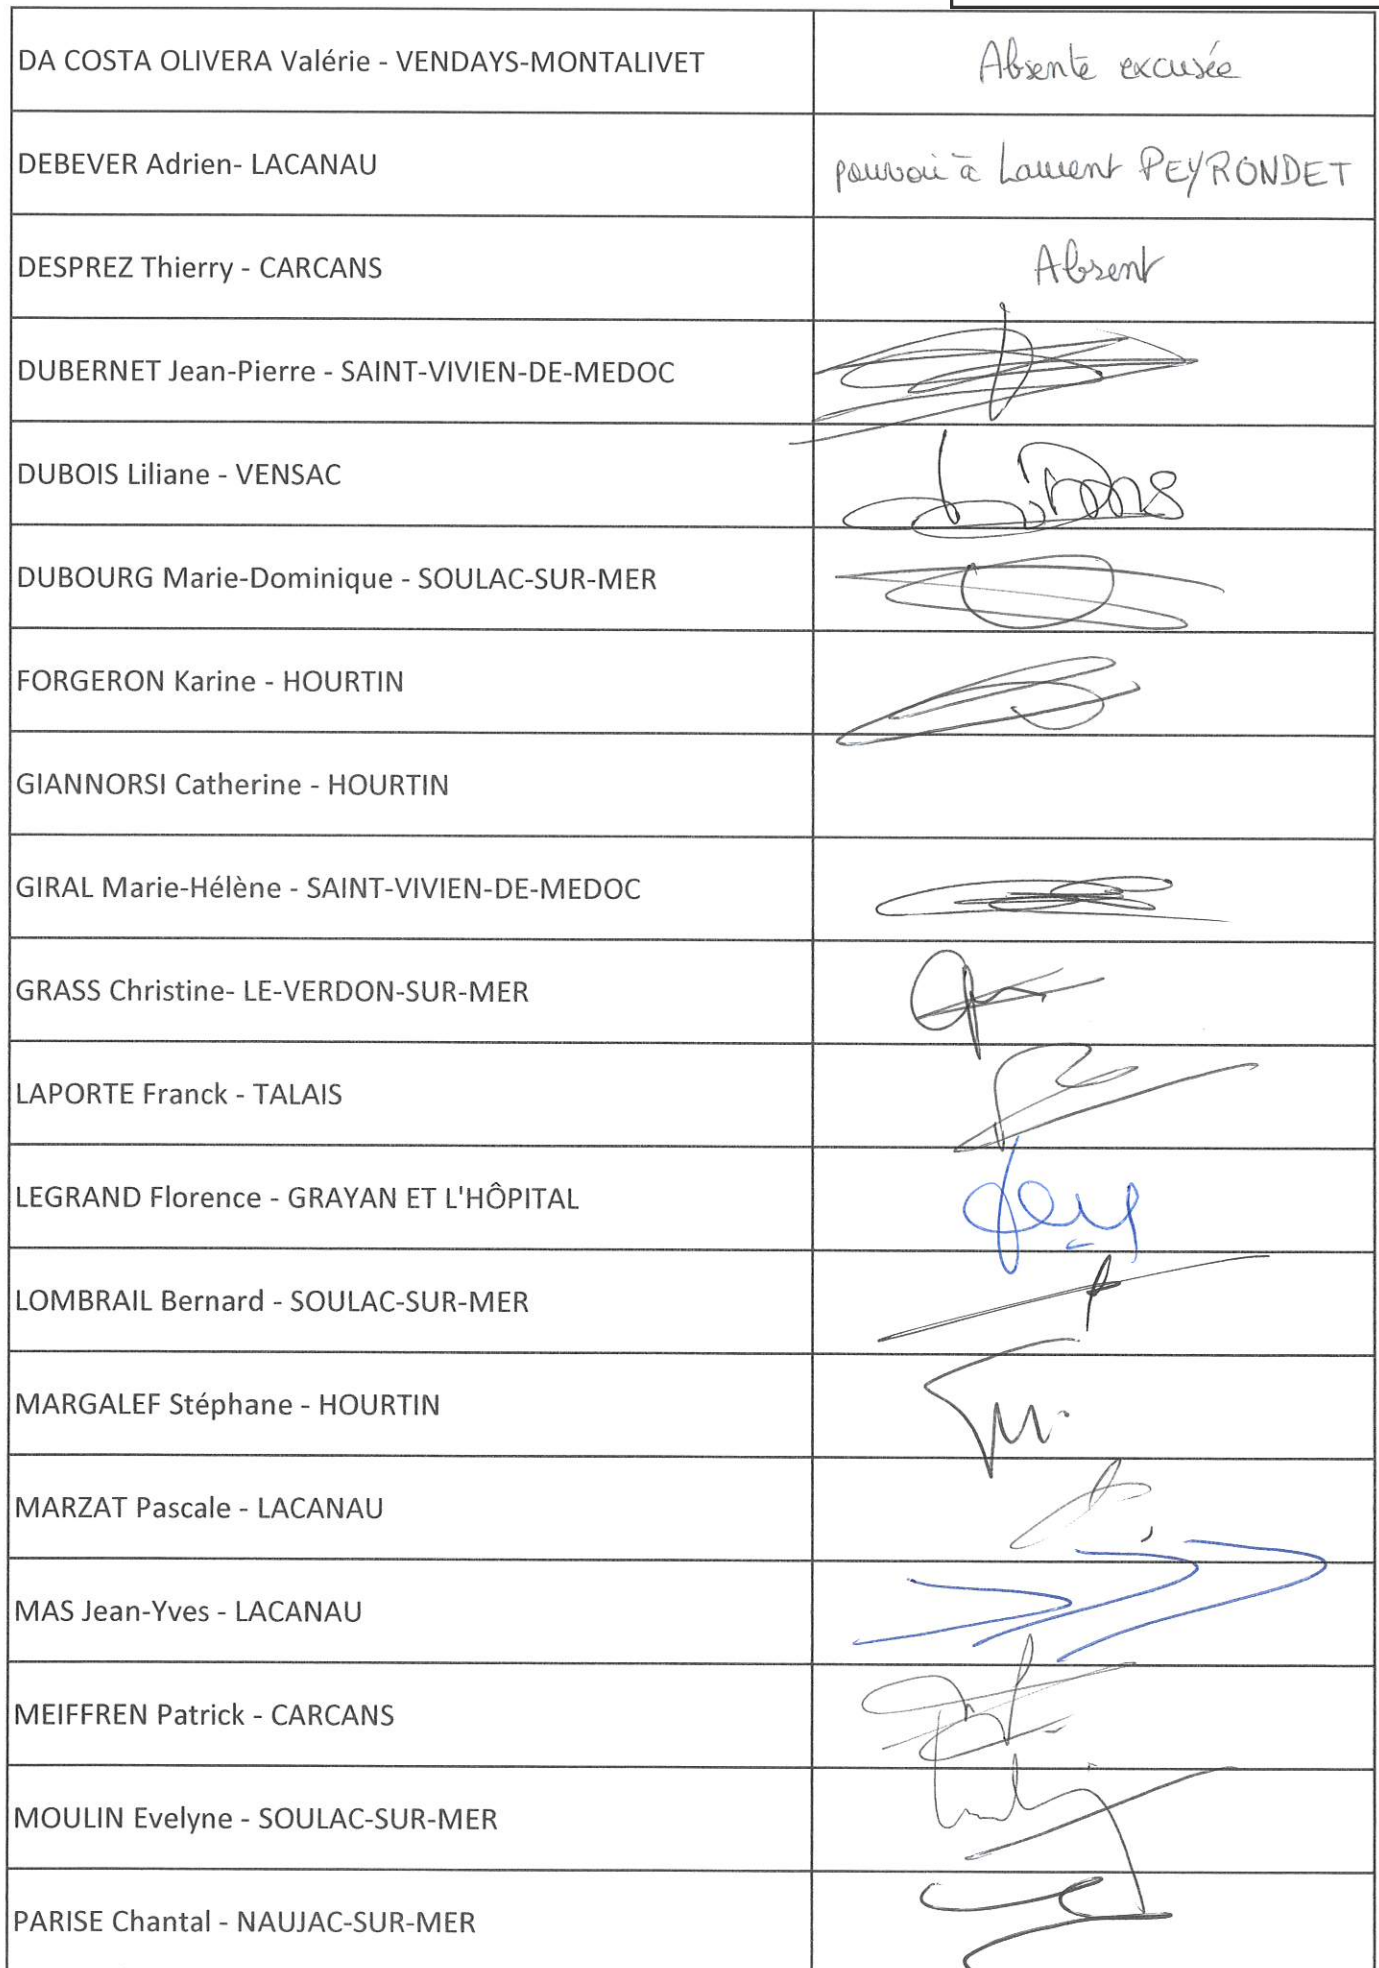 DA COSTA OLIVERA Valérie - VENDAYS-MONTALIVET
Absente excusée
DEBEVER Adrien- LACANAU
pouvoir à Laurent PEYRONDET
DESPREZ Thierry - CARCANS
Absent
DUBERNET Jean-Pierre - SAINT-VIVIEN-DE-MEDOC
DUBOIS Liliane - VENSAC
DUBOURG Marie-Dominique - SOULAC-SUR-MER
FORGERON Karine - HOURTIN
GIANNORSI Catherine - HOURTIN
GIRAL Marie-Hélène - SAINT-VIVIEN-DE-MEDOC
GRASS Christine- LE-VERDON-SUR-MER
LAPORTE Franck - TALAIS
LEGRAND Florence - GRAYAN ET L'HÔPITAL
LOMBRAIL Bernard - SOULAC-SUR-MER
MARGALEF Stéphane - HOURTIN
MARZAT Pascale - LACANAU
MAS Jean-Yves - LACANAU
MEIFFREN Patrick - CARCANS
MOULIN Evelyne - SOULAC-SUR-MER
PARISE Chantal - NAUJAC-SUR-MER